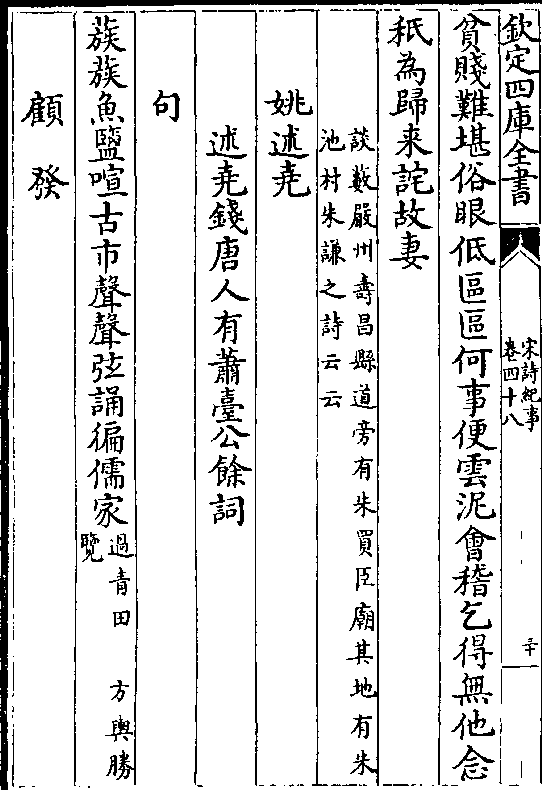 欽定四庫全書
宋詩紀事
卷四十八
三十
貧賤難堪俗眼低區區何事便雲泥會稽乞得無他念
秖為歸来詫故妻
談藪嚴州壽昌縣道旁有朱買臣廟其地有朱
池村朱謙之詩云云
姚述堯
述堯錢唐人有蕭臺公餘詞
句
蔟蔟魚鹽喧古市聲聲弦誦徧儒家
過青田 方輿勝
覽
顧發